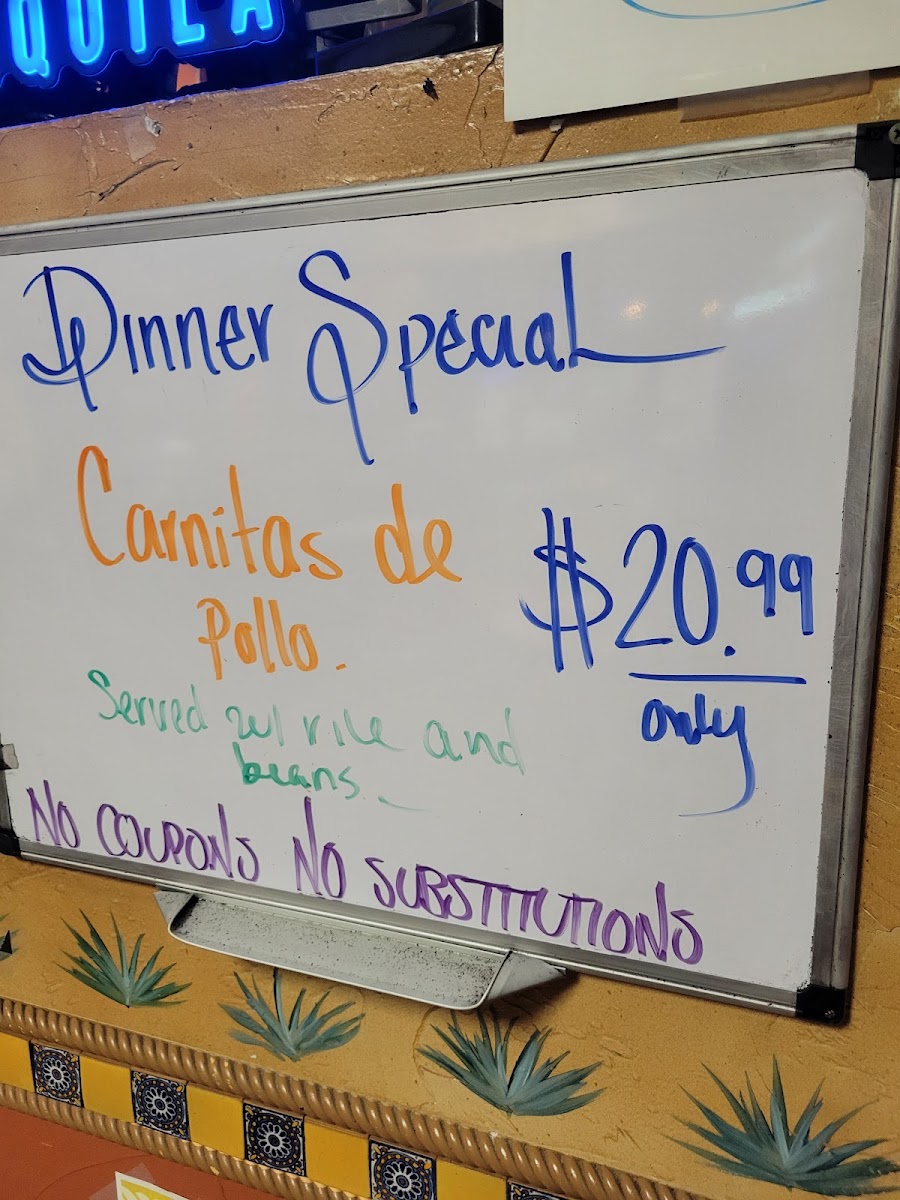 QUILA
Dinner Special
Carnitas de
Pollo.
$20.99
only
Served w/ rice and
beans.
NO COUPONS NO SUBSTITUTIONS